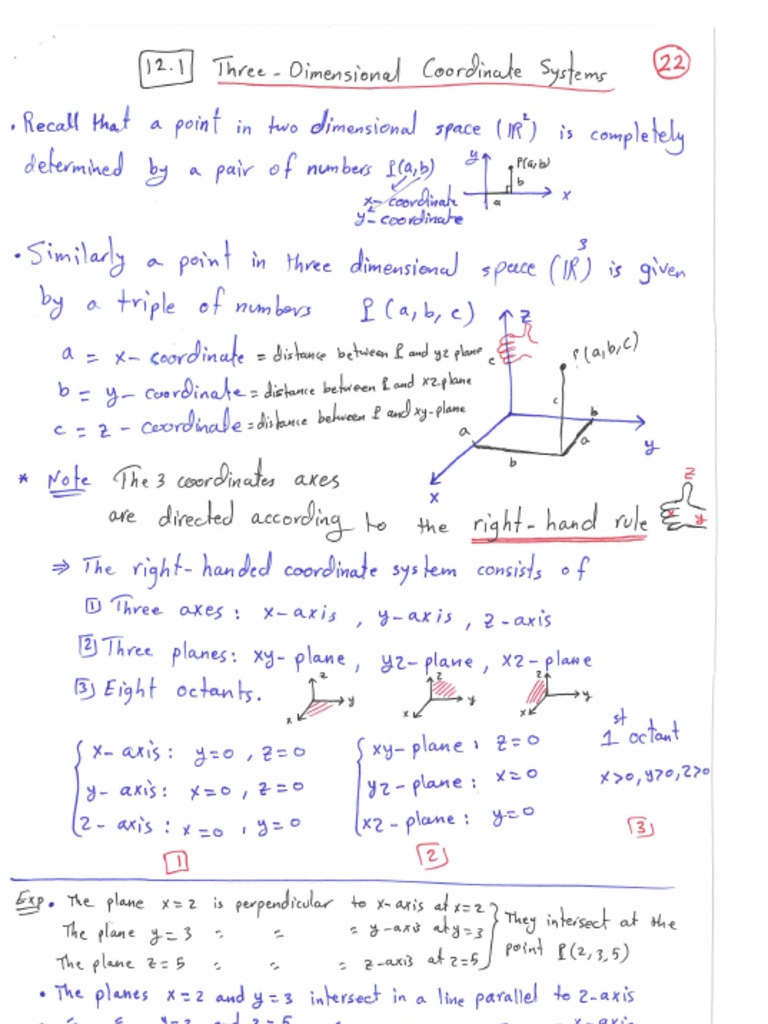 12.1 Three-Dimensional Coordinate Systems 22
• Recall that a point in two dimensional space (ℝ²) is completely
determined by a pair of numbers P(a,b)
x-coordinate
y-coordinate
y P(a,b) b a x
• Similarly a point in three dimensional space (ℝ³) is given
by a triple of numbers P(a, b, c)
a = x-coordinate = distance between P and yz plane
b = y-coordinate = distance between P and xz plane
c = z-coordinate = distance between P and xy-plane
z c P(a,b,c) c a b a b y x
* Note The 3 coordinates axes
are directed according to the right-hand rule
z x y
⇒ The right-handed coordinate system consists of
1 Three axes: x-axis, y-axis, z-axis
2 Three planes: xy-plane, yz-plane, xz-plane
3 Eight octants.
z y x z y x z y x
x-axis: y=0, z=0 xy-plane: z=0 1st octant
y-axis: x=0, z=0 yz-plane: x=0 x>0, y>0, z>0
z-axis: x=0, y=0 xz-plane: y=0 3
1 2
Exp • The plane x=2 is perpendicular to x-axis at x=2
The plane y=3 = = = y-axis at y=3
The plane z=5 = = = z-axis at z=5
They intersect at the
point P(2,3,5)
• The planes x=2 and y=3 intersect in a line parallel to z-axis